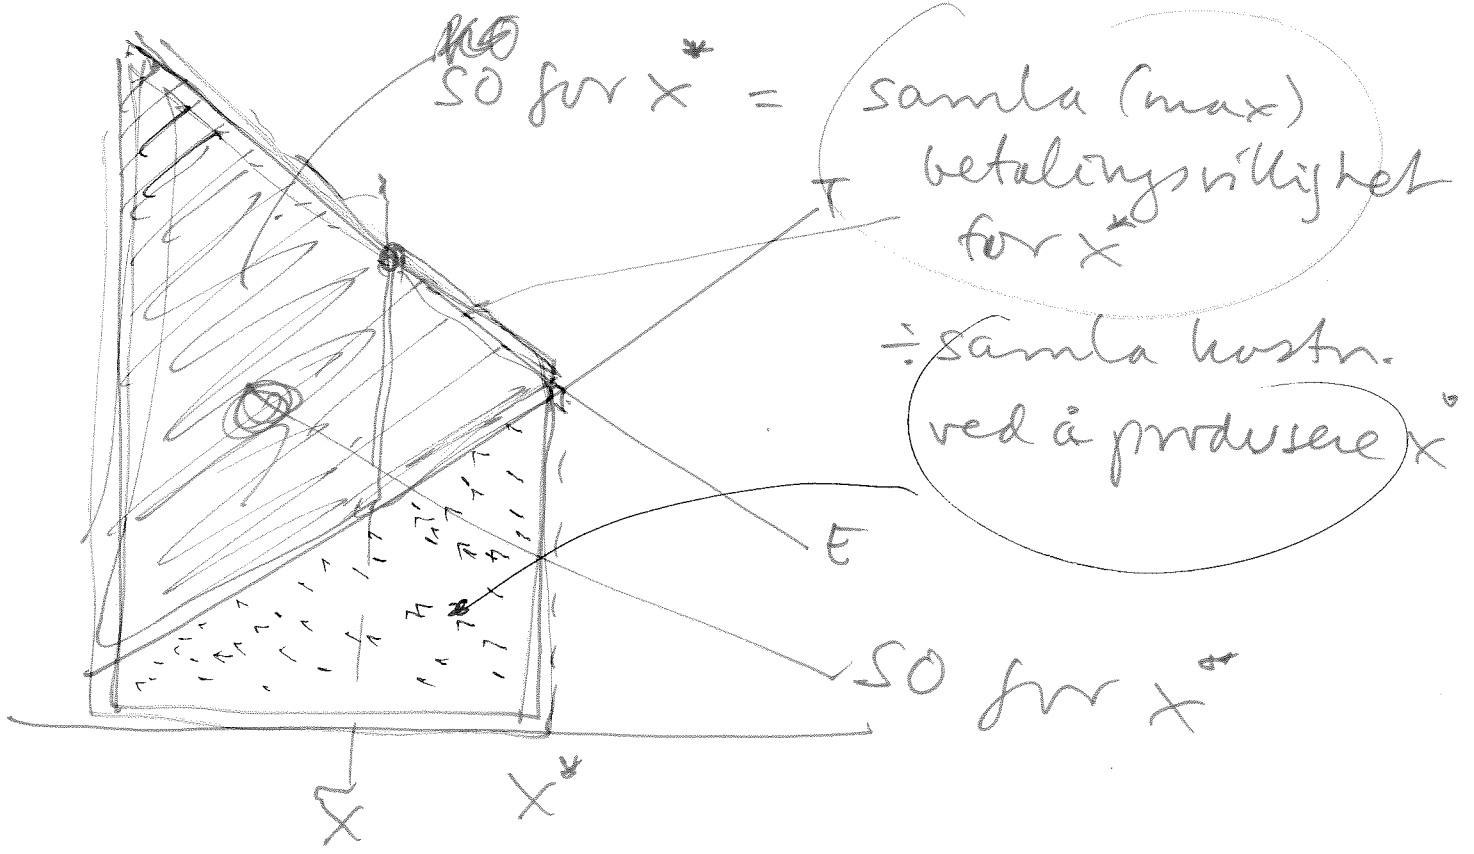 SO for X* = samla (max)
betalingsvillighet
for X*
÷ samla kostn.
ved å produsere X*
T
E
SO for X*
X
X*